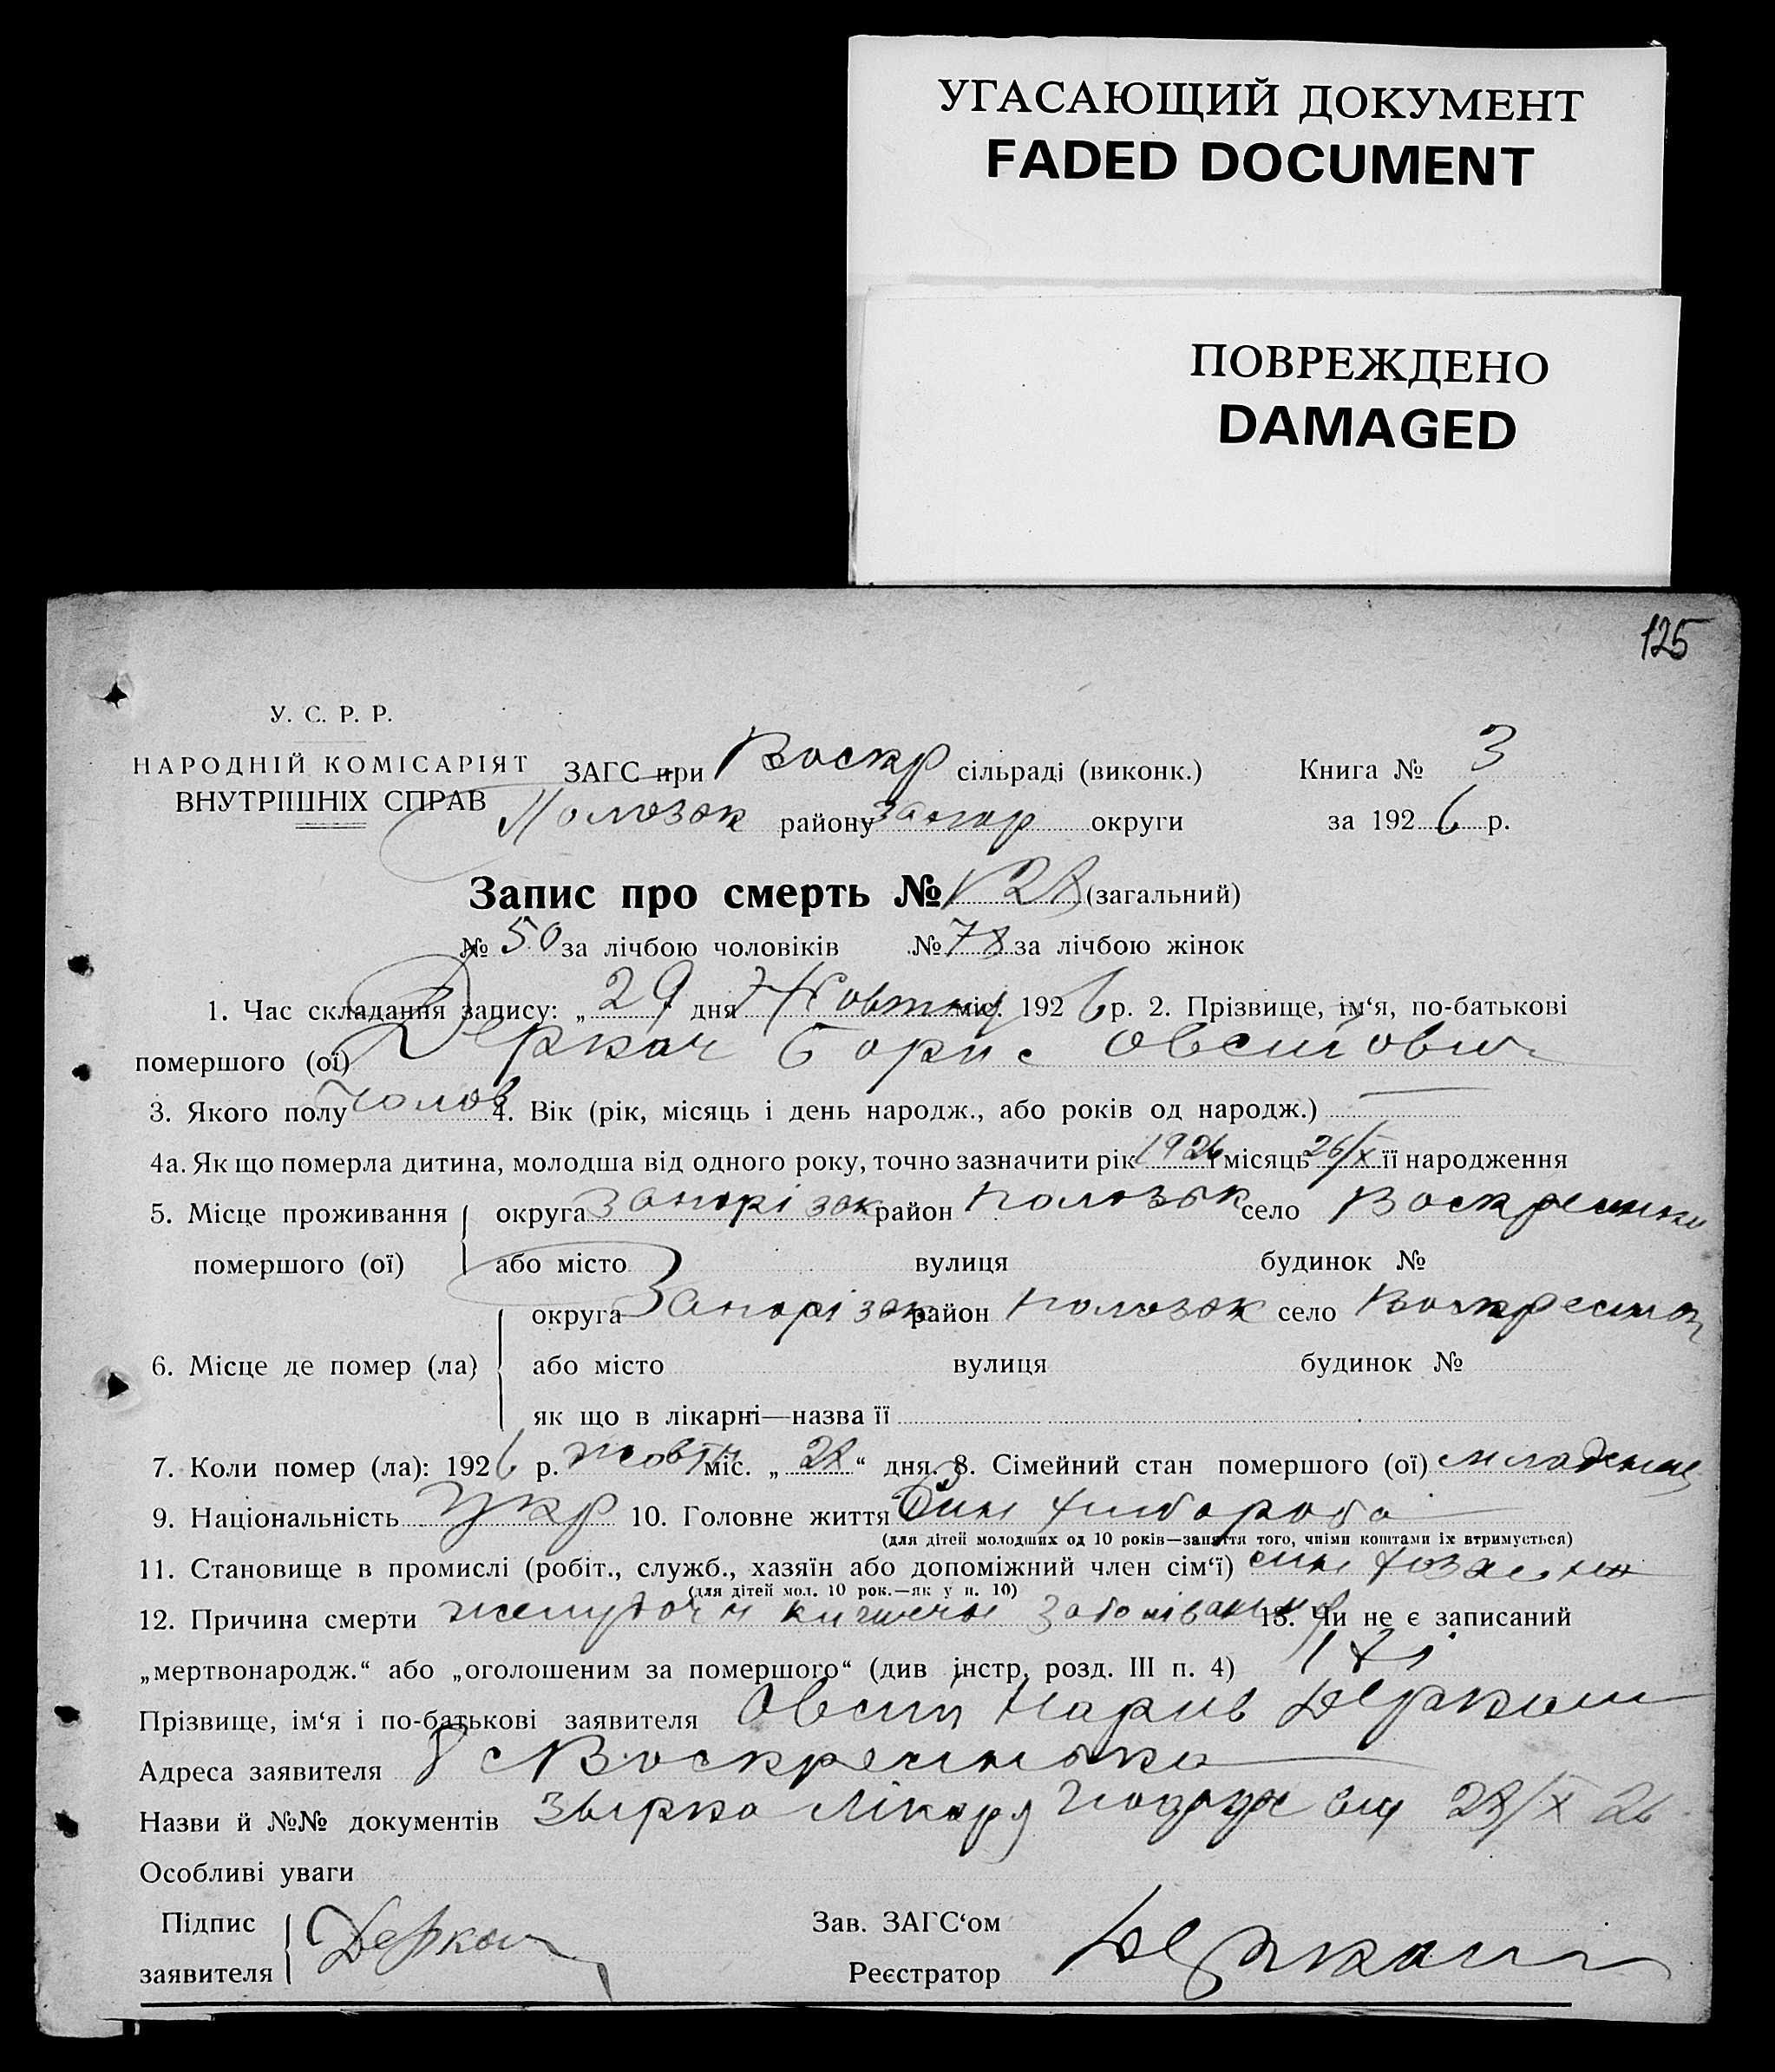 УГАСАЮЩИЙ ДОКУМЕНТ
FADED DOCUMENT
ПОВРЕЖДЕНО
DAMAGED
125
У. С. Р. Р.
НАРОДНІЙ КОМІСАРІЯТ
ВНУТРІШНІХ СПРАВ
ЗАГС при Воскр сільраді (виконк.) Книга № 3
Пологзк району Запор округи за 1926 р.
Запис про смерть № 128 (загальний)
№ 50 за лічбою чоловіків № 78 за лічбою жінок
1. Час складання запису: „29" дня Жовтня міс. 1926 р. 2. Прізвище, ім‘я, по-батькові
помершого (ої) Деркач Борис Овсійович
3. Якого полу чолов 4. Вік (рік, місяць і день народж., або років од народж.) —
4а. Як що померла дитина, молодша від одного року, точно зазначити рік 1926 і місяць 26/X її народження
5. Місце проживання помершого (ої) округа Запорізьк район Пологзьк село Воскресенка
або місто вулиця будинок №
6. Місце де помер (ла) округа Запорізьк район Пологзьк село Воскресенка
або місто вулиця будинок №
як що в лікарні—назва її
7. Коли помер (ла): 1926 р. Жовтн міс. „28“ дня. 8. Сімейний стан помершого (ої) младенець
9. Національність Укр 10. Головне життя Син хлибороба
(для дітей молодших од 10 років—заняття того, чиїми коштами їх втримується)
11. Становище в промислі (робіт., служб., хазяїн або допоміжний член сім‘ї) син хозаїна
(для дітей мол. 10 рок.—як у п. 10)
12. Причина смерти желудочн кишечн заболівання 13. Чи не є записаний
„мертвонародж.“ або „оголошеним за помершого“ (див інстр. розд. III п. 4)
Прізвище, ім‘я і по-батькові заявителя Овсій Деркач
Адреса заявителя с Воскресенька
Назви й №№ документів лікаря від 28/X 26
Особливі уваги
Підпис заявителя Деркач
Зав. ЗАГС‘ом
Реєстратор